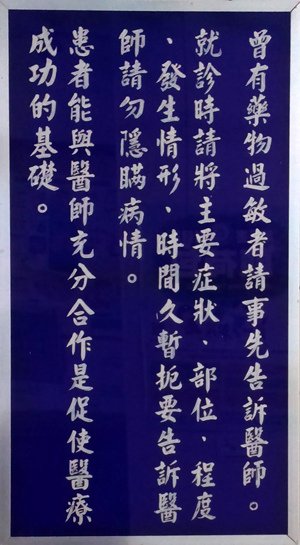 曾有藥物過敏者請事先告訴醫師。
就診時請將主要症狀、部位、程度
、發生情形、時間久暫扼要告訴醫
師請勿隱瞞病情。
患者能與醫師充分合作是促使醫療
成功的基礎。